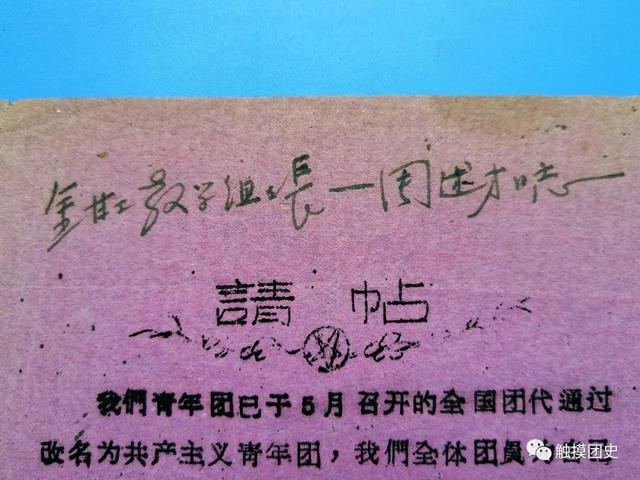 教学组長—周述才同志—
請 帖
我們青年团已于5月召开的全国团代通过
改名为共产主义青年团，我們全体团員
触摸团史